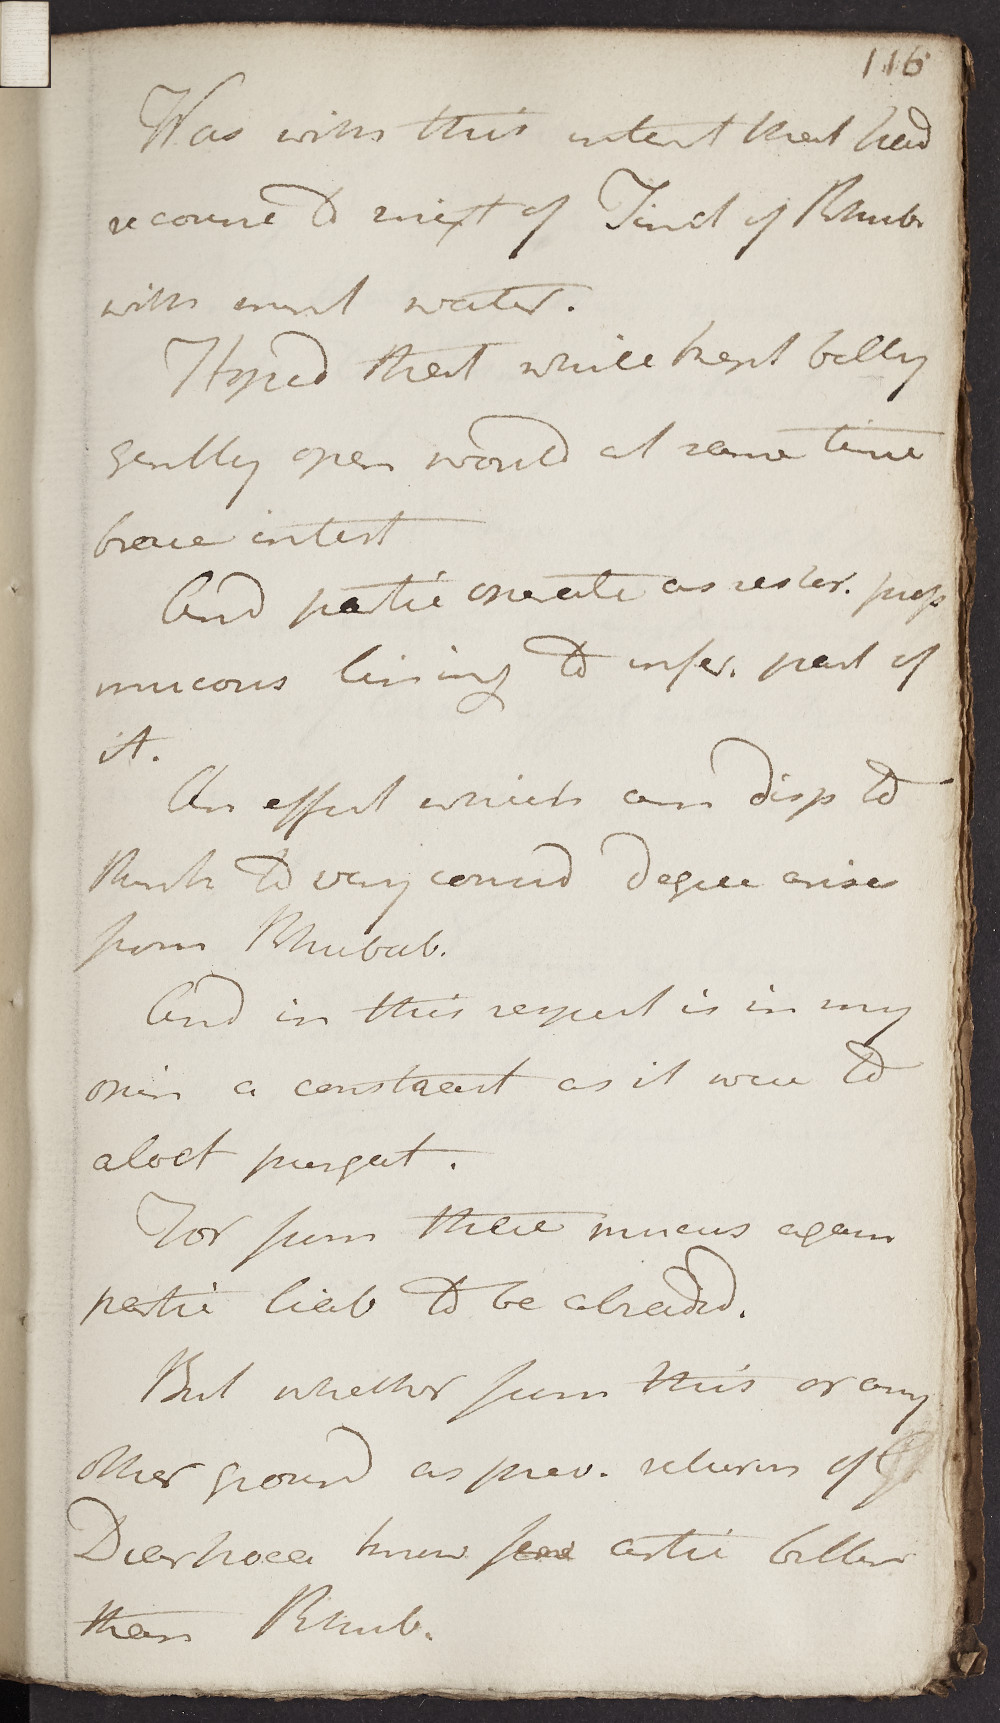 116
Was with this intent that had
recourse to mixt of Tinct of Rhub
with mint water.
Hoped that while kept belly
gently open would at same time
brace intest
And partic operate as restor. prop
mucous lining to infer. part of
it.
An effect which am disp to
think to very consid degree arises
from Rhubab.
And in this respect is in my
opin a constrast as it were to
aloet purgat.
For from these mucus again
partic liab to be abraded.
But whether from this or any
other ground as prev. returns of
Diarrhoea know few artic better
than Rhub.